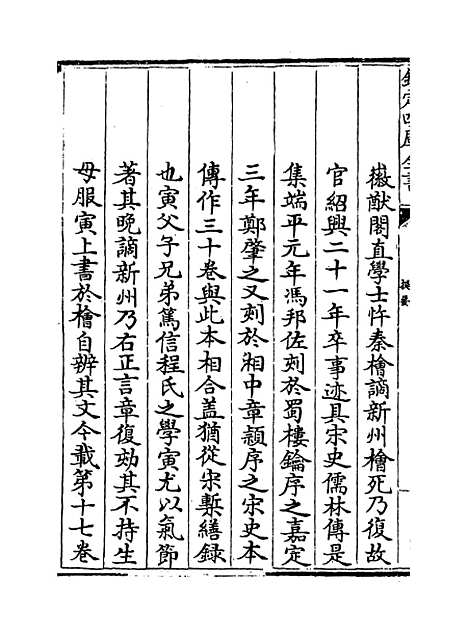 欽定四庫全書
提要
徽猷閣直學士忤秦檜謫新州檜死乃復故
官紹興二十一年卒事迹具宋史儒林傳是
集端平元年馮邦佐刻於蜀樓鑰序之嘉定
三年鄭肇之又刻於湘中章穎序之宋史本
傳作三十卷與此本相合蓋猶從宋槧繕録
也寅父子兄弟篤信程氏之學寅尤以氣節
著其晩謫新州乃右正言章復劾其不持生
母服寅上書於檜自辨其文今載第十七卷